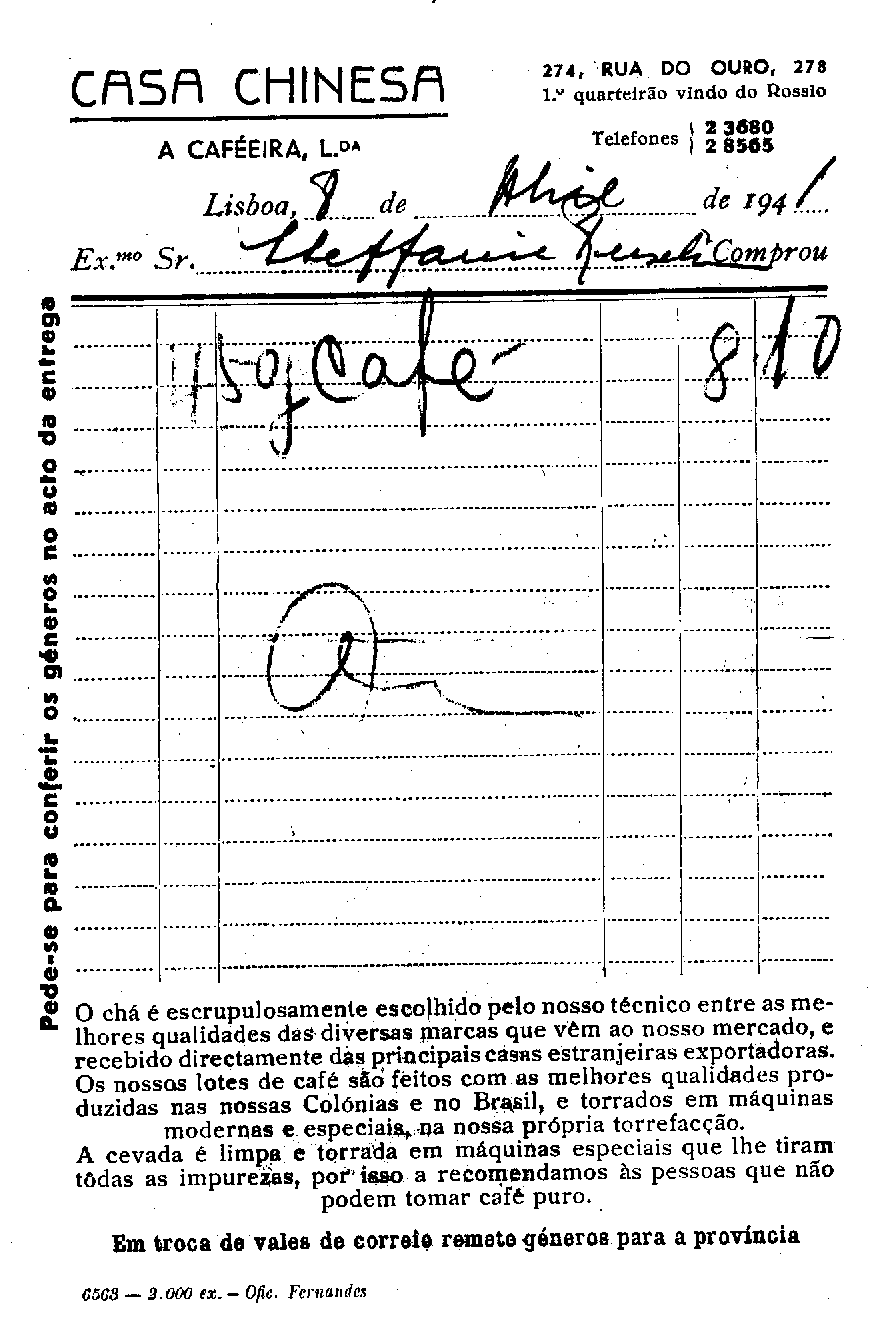 CASA CHINESA
A CAFÉEIRA, L.DA
274, RUA DO OURO, 278
1.º quarteirão vindo do Rossio
Telefones 2 3680
2 8565
Lisboa, 8 de Abril de 1941
Ex.mo Sr. Steffanie Comprou
450g Café 8 10
Pede-se para conferir os géneros no acto da entrega
O chá é escrupulosamente escolhido pelo nosso técnico entre as me-
lhores qualidades das diversas marcas que vêm ao nosso mercado, e
recebido directamente das principais casas estranjeiras exportadoras.
Os nossos lotes de café são feitos com as melhores qualidades pro-
duzidas nas nossas Colónias e no Brasil, e torrados em máquinas
modernas e especiais, na nossa própria torrefacção.
A cevada é limpa e torrada em máquinas especiais que lhe tiram
tôdas as impurezas, por isso a recomendamos às pessoas que não
podem tomar café puro.
Em troca de vales de correio remete géneros para a província
6563 — 3.000 ex. — Ofic. Fernandes